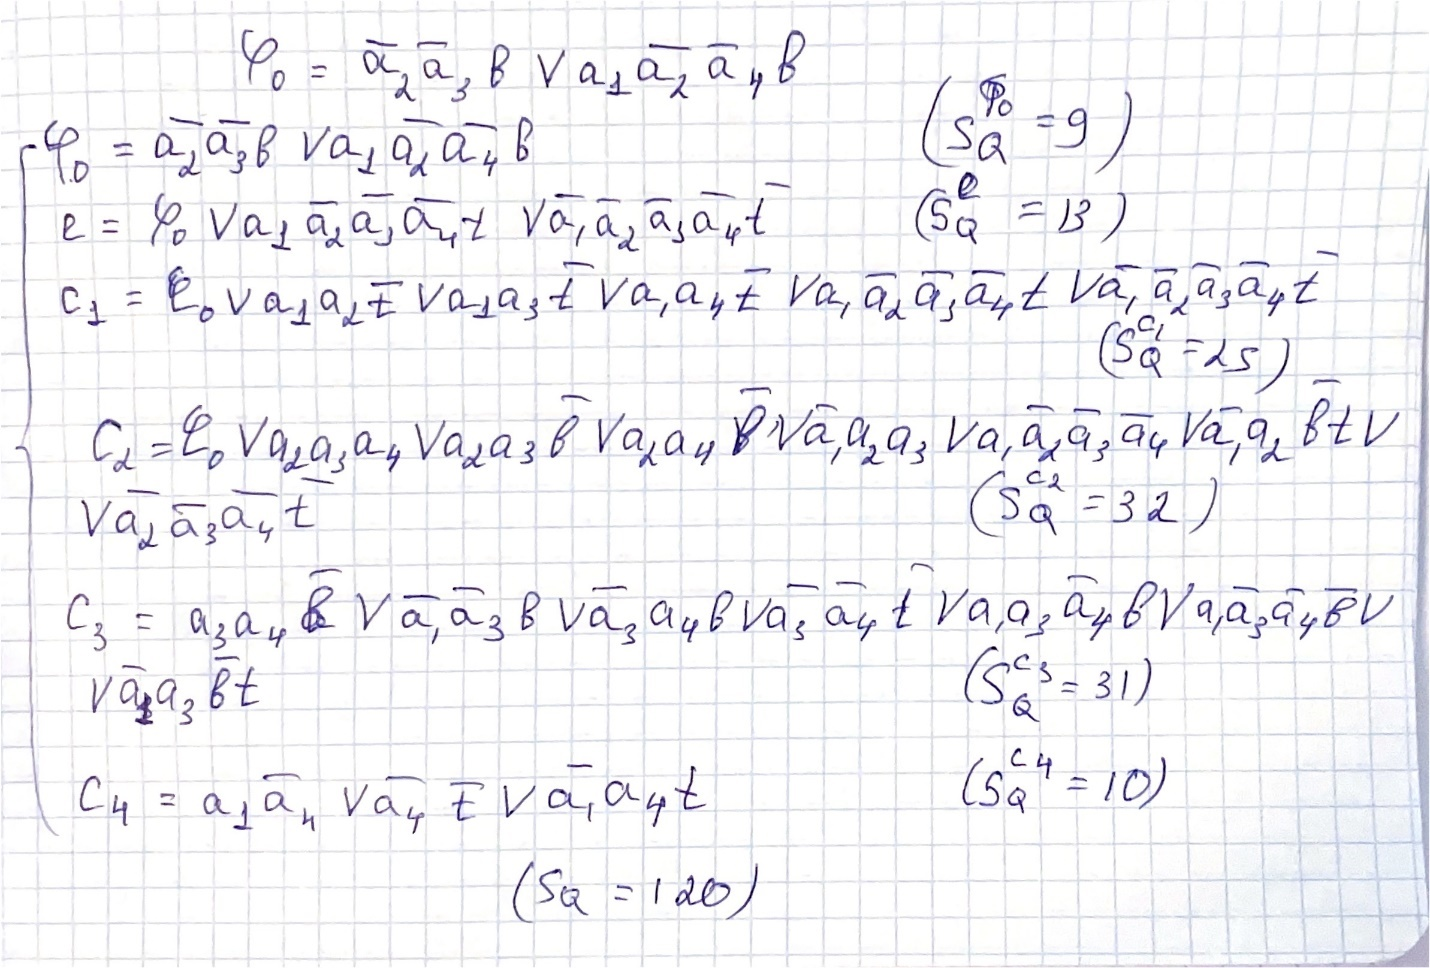 φ₀ = a̅₂a̅₃в ∨ a₁a̅₂a̅₄в
φ₀ = a̅₂a̅₃в ∨ a₁a̅₂a̅₄в (S_Q^φ₀ = 9)
e = φ₀ ∨ a₁a̅₂a̅₃a̅₄t ∨ a̅₁a̅₂a̅₃a̅₄t̅ (S_Q^e = 13)
c₁ = φ₀ ∨ a₁a₂t̅ ∨ a₁a₃t̅ ∨ a₁a₄t̅ ∨ a₁a̅₂a̅₃a̅₄t ∨ a̅₁a̅₂a̅₃a̅₄t̅
(S_Q^c₁ = 25)
C₂ = φ₀ ∨ a₂a₃a₄ ∨ a₂a₃в̅ ∨ a₂a₄в̅ ∨ a̅₁a₂a₃ ∨ a₁a̅₂a̅₃a̅₄ ∨ a̅₁a₂в̅t ∨
∨ a̅₂a̅₃a̅₄t̅ (S_Q^c₂ = 32)
C₃ = a₃a₄в̅ ∨ a̅₁a̅₃в ∨ a̅₃a₄в ∨ a̅₃a̅₄t̅ ∨ a₁a₃a̅₄в ∨ a₁a̅₃a̅₄в̅ ∨
∨ a̅₁a₃в̅t (S_Q^c₃ = 31)
C₄ = a₁a̅₄ ∨ a̅₄t̅ ∨ a̅₁a₄t (S_Q^c₄ = 10)
(S_Q = 120)